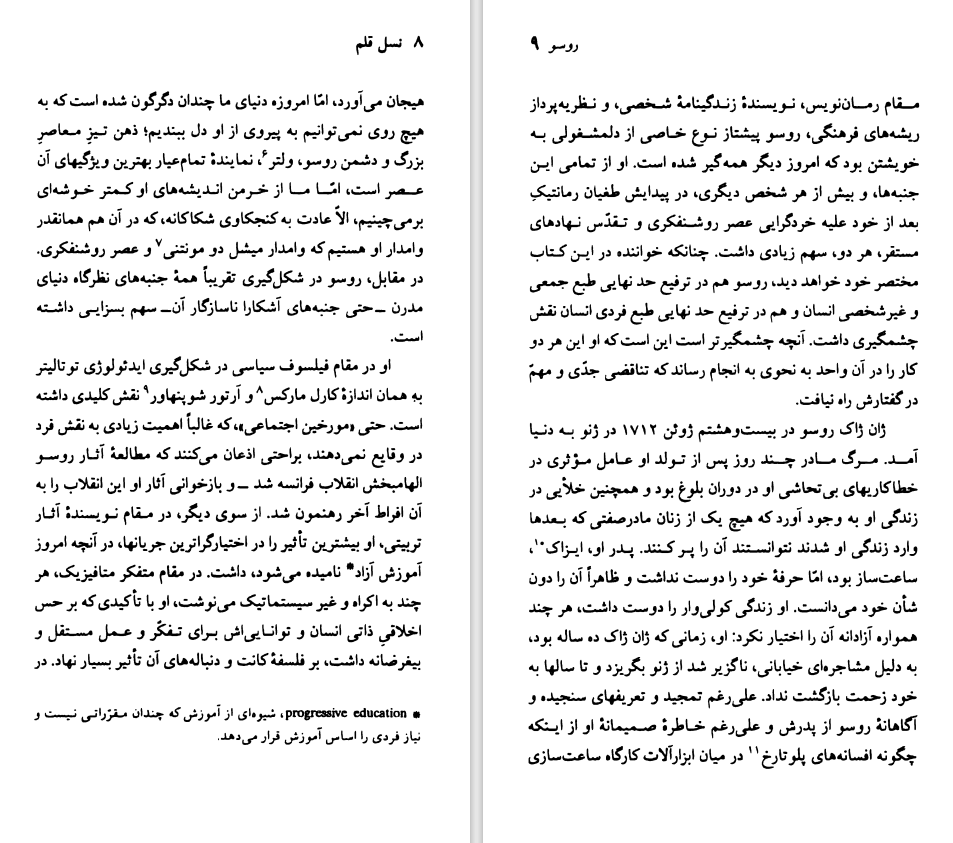 ۸ نسل قلم
هیجان می‌آورد، امّا امروزه دنیای ما چندان دگرگون شده است که به
هیچ روی نمی‌توانیم به پیروی از او دل ببندیم؛ ذهن تیزِ معاصرِ
بزرگ و دشمن روسو، ولتر۶، نمایندهٔ تمام‌عیار بهترین ویژگیهای آن
عصر است، امّا ما از خرمن اندیشه‌های او کمتر خوشه‌ای
برمی‌چینیم، الاّ عادت به کنجکاوی شکاکانه، که در آن هم همانقدر
وامدار او هستیم که وامدار میشل دو مونتنی۷ و عصر روشنفکری.
در مقابل، روسو در شکل‌گیری تقریباً همهٔ جنبه‌های نظرگاه دنیای
مدرن ـ حتی جنبه‌های آشکارا ناسازگار آن ـ سهم بسزایی داشته
است.
او در مقام فیلسوف سیاسی در شکل‌گیری ایدئولوژی توتالیتر
به همان اندازهٔ کارل مارکس۸ و آرتور شوپنهاور۹ نقش کلیدی داشته
است. حتی «مورخین اجتماعی»، که غالباً اهمیت زیادی به نقش فرد
در وقایع نمی‌دهند، براحتی اذعان می‌کنند که مطالعهٔ آثار روسو
الهامبخش انقلاب فرانسه شد ـ و بازخوانی آثار او این انقلاب را به
آن افراط آخر رهنمون شد. از سوی دیگر، در مقام نویسندهٔ آثار
تربیتی، او بیشترین تأثیر را در اختیارگراترین جریانها، در آنچه امروز
آموزش آزاد* نامیده می‌شود، داشت. در مقام متفکر متافیزیک، هر
چند به اکراه و غیر سیستماتیک می‌نوشت، او با تأکیدی که بر حس
اخلاقیِ ذاتی انسان و توانایی‌اش برای تفکّر و عمل مستقل و
بیغرضانه داشت، بر فلسفهٔ کانت و دنباله‌های آن تأثیر بسیار نهاد. در
* progressive education، شیوه‌ای از آموزش که چندان مقرّراتی نیست و
نیاز فردی را اساس آموزش قرار می‌دهد.
روسو ۹
مقام رمان‌نویس، نویسندهٔ زندگینامهٔ شخصی، و نظریه‌پرداز
ریشه‌های فرهنگی، روسو پیشتاز نوع خاصی از دلمشغولی به
خویشتن بود که امروز دیگر همه‌گیر شده است. او از تمامی این
جنبه‌ها، و بیش از هر شخص دیگری، در پیدایش طغیان رمانتیکِ
بعد از خود علیه خردگرایی عصر روشنفکری و تقدّس نهادهای
مستقر، هر دو، سهم زیادی داشت. چنانکه خواننده در این کتاب
مختصر خود خواهد دید، روسو هم در ترفیع حد نهایی طبع جمعی
و غیرشخصی انسان و هم در ترفیع حد نهایی طبع فردی انسان نقش
چشمگیری داشت. آنچه چشمگیرتر است این است که او این هر دو
کار را در آن واحد به نحوی به انجام رساند که تناقضی جدّی و مهمّ
در گفتارش راه نیافت.
ژان ژاک روسو در بیست‌وهشتم ژوئن ۱۷۱۲ در ژنو به دنیا
آمد. مرگ مادر چند روز پس از تولد او عامل مؤثری در
خطاکاریهای بی‌تحاشی او در دوران بلوغ بود و همچنین خلأیی در
زندگی او به وجود آورد که هیچ یک از زنان مادرصفتی که بعدها
وارد زندگی او شدند نتوانستند آن را پر کنند. پدر او، ایزاک۱۰،
ساعت‌ساز بود، امّا حرفهٔ خود را دوست نداشت و ظاهراً آن را دون
شأن خود می‌دانست. او زندگی کولی‌وار را دوست داشت، هر چند
همواره آزادانه آن را اختیار نکرد: او، زمانی که ژان ژاک ده ساله بود،
به دلیل مشاجره‌ای خیابانی، ناگزیر شد از ژنو بگریزد و تا سالها به
خود زحمت بازگشت نداد. علی‌رغم تمجید و تعریفهای سنجیده و
آگاهانهٔ روسو از پدرش و علی‌رغم خاطرهٔ صمیمانهٔ او از اینکه
چگونه افسانه‌های پلوتارخ۱۱ در میان ابزارآلات کارگاه ساعت‌سازی